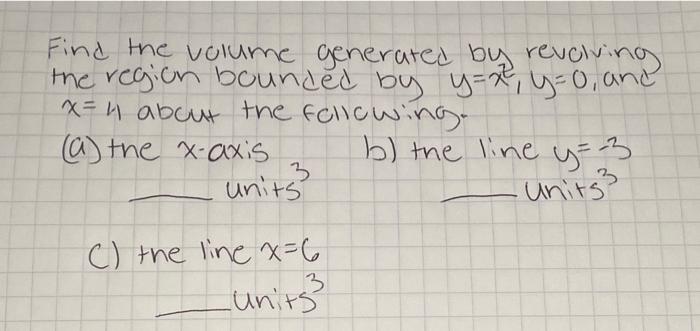 Find the volume generated by revolving
the region bounded by y=x², y=0, and
x=4 about the following.
(a) the x-axis b) the line y=-3
____ units³ ____ units³
c) the line x=6
____ units³